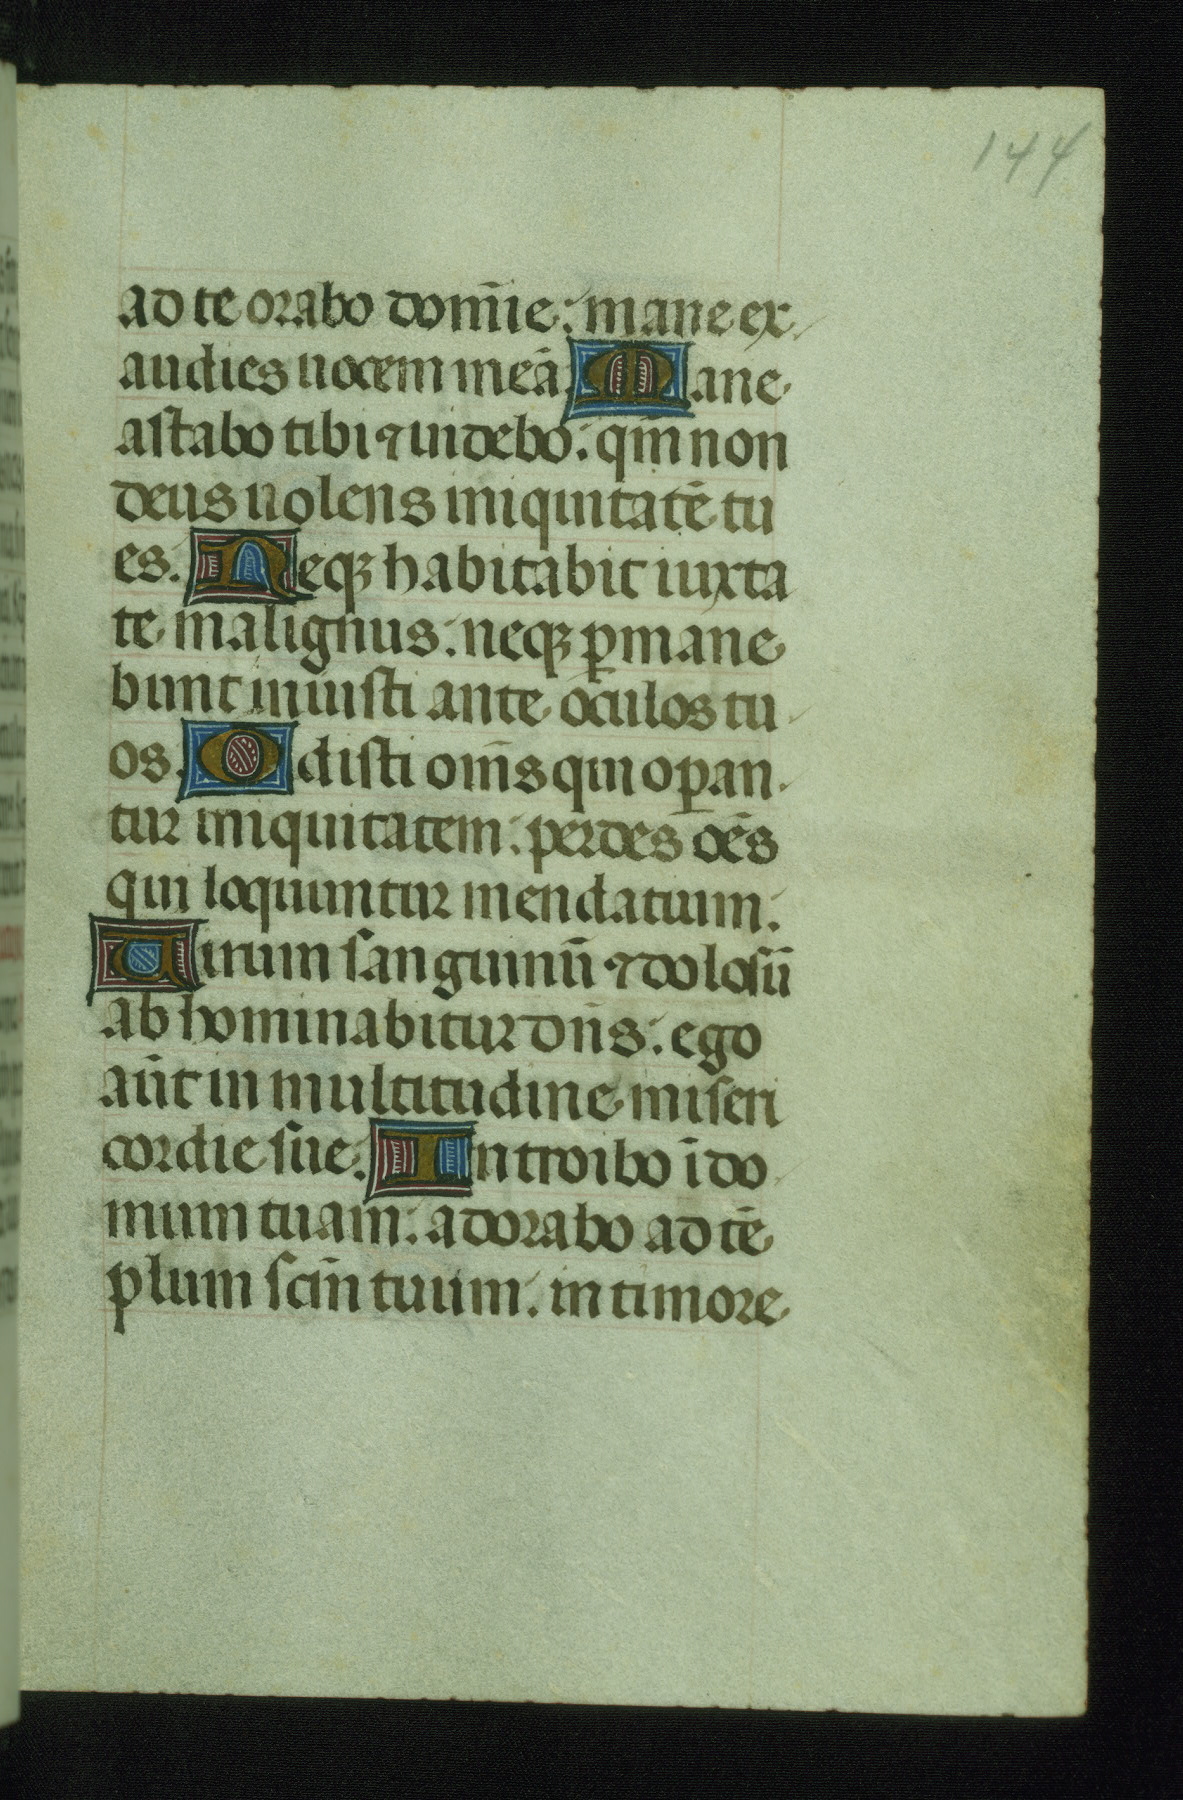 144
ad te orabo dom̄ie: mane ex
audies uocem meā. Mane
astabo tibi ⁊ uidebo: qm̄ non
deus uolens iniquitatē tu
es. Neqꝫ habitabit iuxta
te malignus: neqꝫ ꝑmane
bunt iniusti ante oculos tu
os. Odisti om̄s qui oꝑan
tur iniquitatem: perdes oēs
qui loquuntur mendatium.
Uirum sanguinū ⁊ dolosū
ab hominabitur dn̄s: ego
aūt in multitudine miseri
cordie sue. Introibo ī do
mum tuam: adorabo ad tē
plum scm̄ tuum: in timore